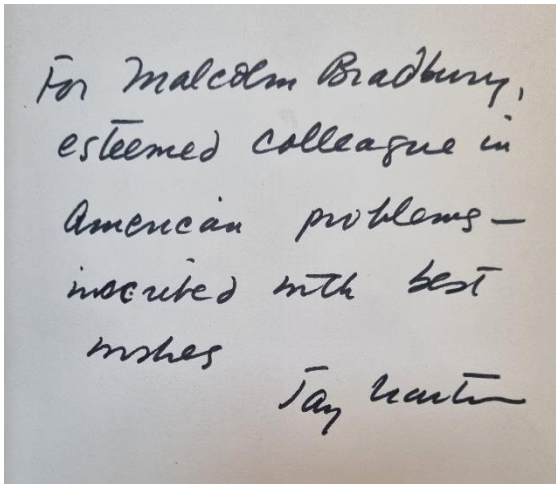 For Malcolm Bradbury,
esteemed colleague in
American problems—
inscribed with best
wishes
Jay Martin